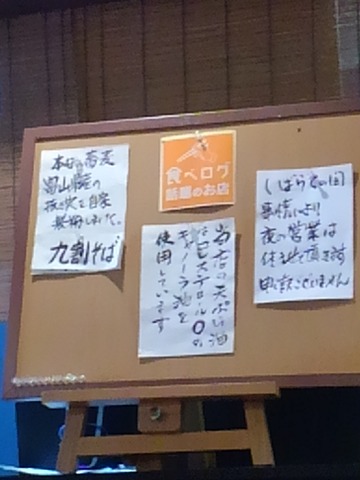 本日の蕎麦
富山産の
抜き実を自家
製粉しました。
九割そば
食べログ
話題のお店
当店の天ぷら油
はコレステロール0の
キャノーラ油を
使用しています
しばらくの間
事情により
夜の営業は
休ませて頂きます
申し訳ございません